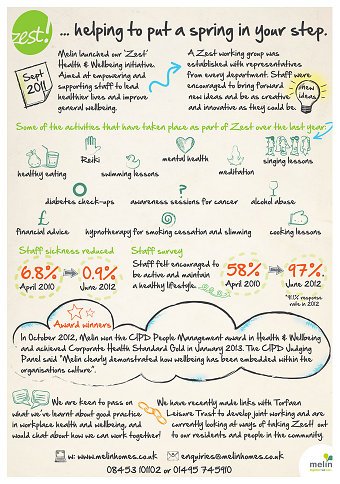 zest!
... helping to put a spring in your step.
Sept
2011
Melin launched our 'Zest'
Health & Wellbeing initiative.
Aimed at empowering and
supporting staff to lead
healthier lives and improve
general wellbeing.
A Zest working group was
established with representatives
from every department. Staff were
encouraged to bring forward
new ideas and be as creative
and innovative as they could be.
new
ideas
Some of the activities that have taken place as part of Zest over the last year:
healthy eating
Reiki
swimming lessons
mental health
meditation
singing lessons
diabetes check-ups
awareness sessions for cancer
alcohol abuse
financial advice
hypnotherapy for smoking cessation and slimming
cooking lessons
Staff sickness reduced
6.8%
April 2010
0.9%
June 2012
Staff survey
Staff felt encouraged to
be active and maintain
a healthy lifestyle.
58%
April 2010
97%.
June 2012
response
rate in 2012
Award winners
In October 2012, Melin won the CIPD People Management award in Health & Wellbeing
and achieved Corporate Health Standard Gold in January 2013. The CIPD Judging
Panel said "Melin clearly demonstrated how wellbeing has been embedded within the
organisations culture".
We are keen to pass on
what we've learnt about good practice
in workplace health and wellbeing, and
would chat about how we can work together!
We have recently made links with Torfaen
Leisure Trust to develop joint working and are
currently looking at ways of taking Zest! out
to our residents and people in the community.
w: www.melinhomes.co.uk
enquiries@melinhomes.co.uk
08453 101102 or 01495 745910
melin